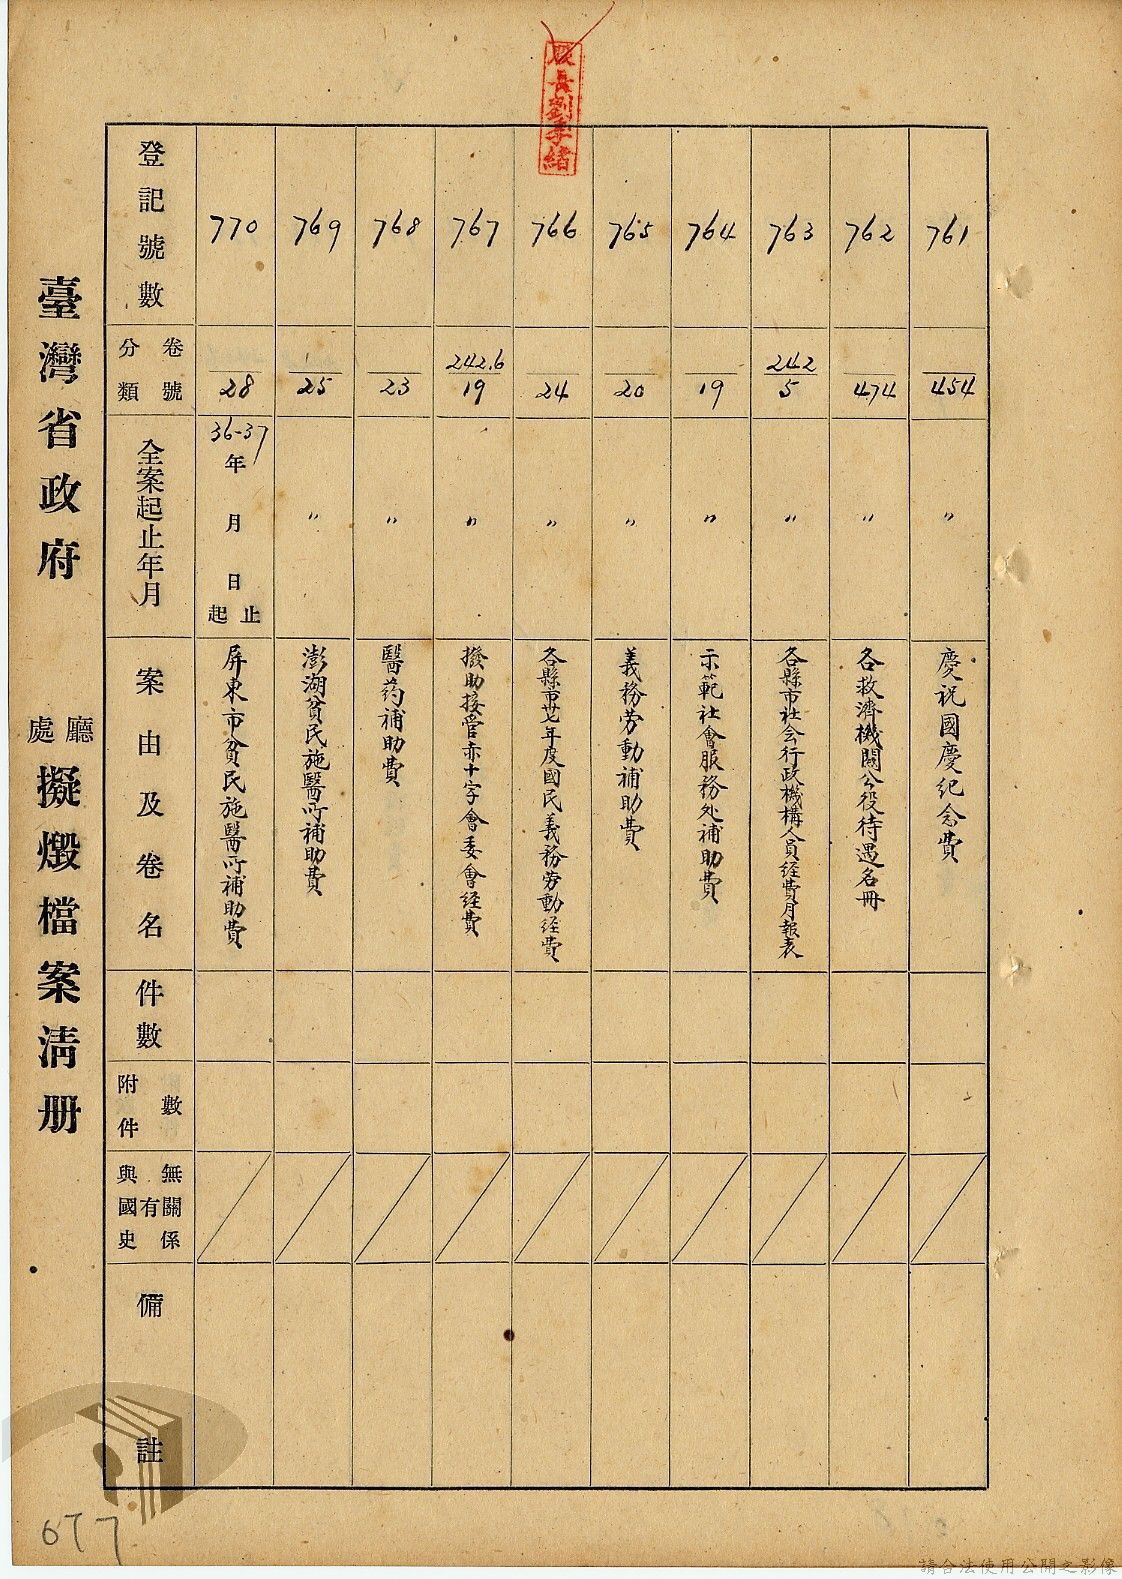 股長劉季緒
臺灣省政府 廳處 擬燬檔案清册
登記號數
卷號
分類
全案起止年月
案由及卷名
件數
附件數
與國史有無關係
備註
761
454
〃
慶祝國慶紀念費
762
474
〃
各救濟機關公役待遇名冊
763
242
5
〃
各縣市社会行政機構人員経費月報表
764
19
〃
示範社會服務处補助費
765
20
〃
義務労動補助費
766
24
〃
各縣市卅七年度國民義務劳動経費
767
242.6
19
〃
撥助接管赤十字會委會経費
768
23
〃
醫药補助費
769
25
〃
澎湖貧民施醫所補助費
770
28
36-37年 月 日起止
屏東市貧民施醫所補助費
677
請合法使用公開之影像